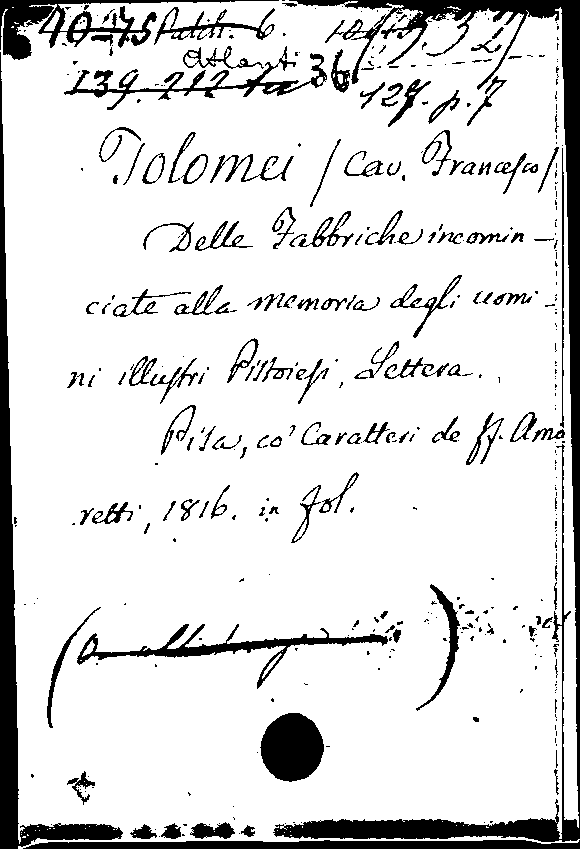 40-75 Palch. 6.
Atlanti 36
139. 212 127. p. 7
Tolomei /Cav. Francesco/
Delle Fabbriche incomin-
ciate alla memoria degli uomi-
ni illustri Pistoiesi, Lettera.
Pisa, co' Caratteri de FF. Amo
retti, 1816. in fol.